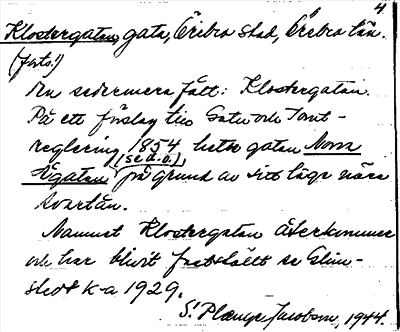 4
Klostergatan, gata, Örebro stad, Örebro län.
(forts.)
den sedermera fått: Klostergatan.
På ett förslag till Gatu och Tomt-
reglering 1854 heter gatan Norra
(se d.o.)
Ågatan på grund av sitt läge nära
Svartån.
Namnet Klostergatan återkommer
och har blivit fastställt se Elim-
stedt k-a 1929.
S. Plænge Jacobson, 1944.